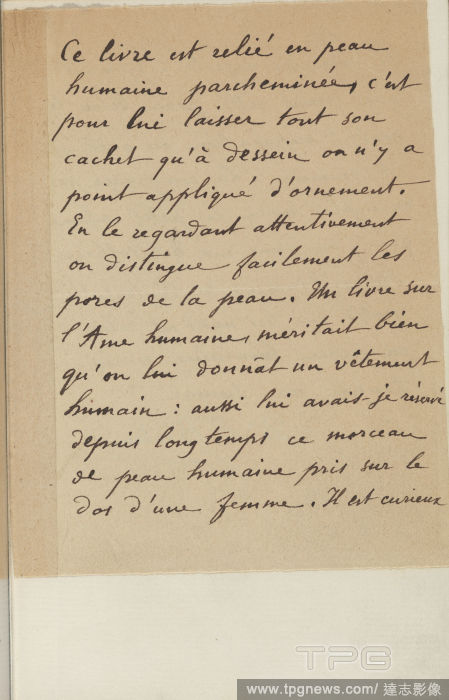 Ce livre est relié en peau
humaine parcheminée, c'est
pour lui laisser tout son
cachet qu'à dessein on n'y a
point appliqué d'ornement.
En le regardant attentivement
on distingue facilement les
pores de la peau. Un livre sur
l'Ame humaine, méritait bien
qu'on lui donnât un vêtement
humain : aussi lui avais-je réservé
depuis longtemps ce morceau
de peau humaine pris sur le
dos d'une femme. Il est curieux
TPG
www.tpgnews.com/達志影像